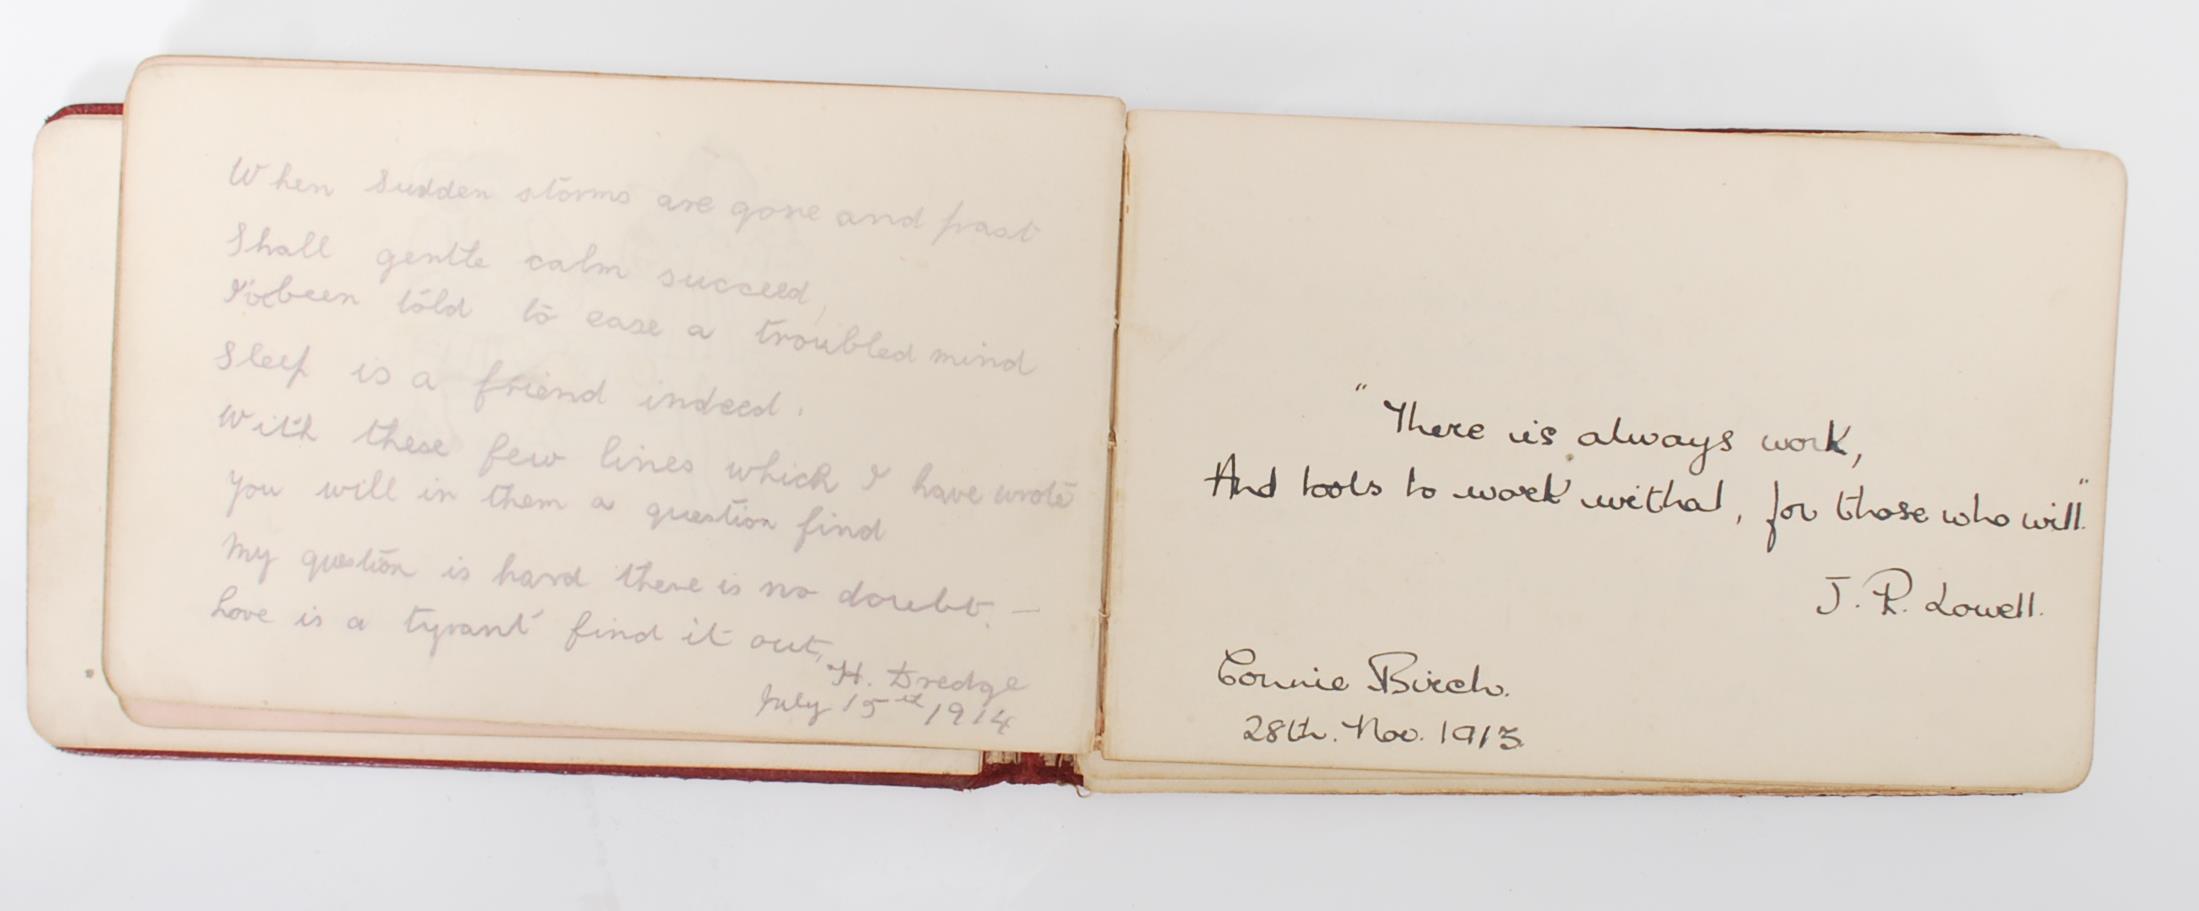 When Sudden storms are gone and past
Shall gentle calm succeed,
I've been told to ease a troubled mind
Sleep is a friend indeed.
With these few lines which I have wrote
You will in them a question find
My question is hard there is no doubt. —
Love is a tyrant find it out,
H. Dredge
July 15th 1914
"There is always work,
And tools to work withal, for those who will."
J. R. Lowell.
Connie Birch.
28th. Nov. 1913